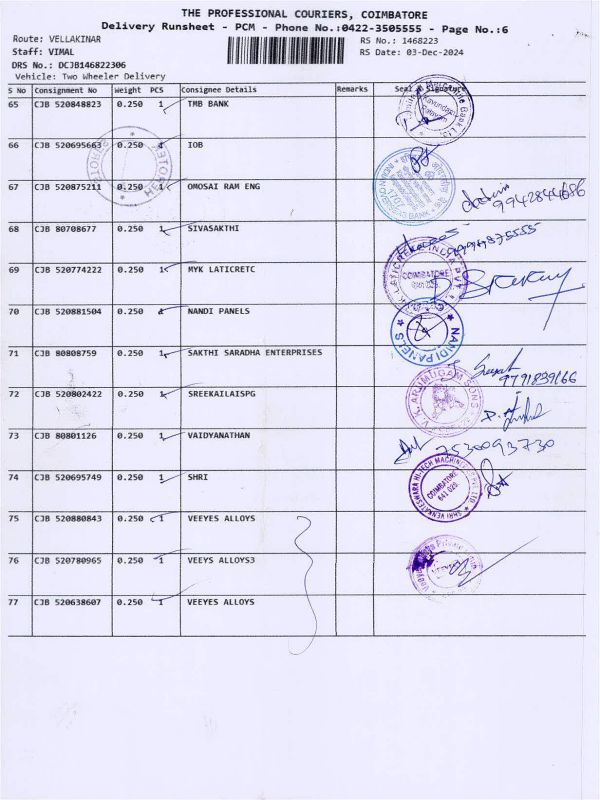 THE PROFESSIONAL COURIERS, COIMBATORE
Delivery Runsheet - PCM - Phone No.:0422-3505555 - Page No.:6
Route: VELLAKINAR
RS No.: 1468223
Staff: VIMAL
RS Date: 03-Dec-2024
DRS No.: DCJB146822306
Vehicle: Two Wheeler Delivery
S No Consignment No Weight PCS Consignee Details Remarks Seal & Signature
65 CJB 520848823 0.250 1 TMB BANK
66 CJB 520695663 0.250 1 IOB
67 CJB 520875211 0.250 1 OMOSAI RAM ENG
9942844686
68 CJB 80708677 0.250 1 SIVASAKTHI
69 CJB 520774222 0.250 1 MYK LATICRETC
COIMBATORE
70 CJB 520881504 0.250 1 NANDI PANELS
NANDI PANELS
71 CJB 80808759 0.250 1 SAKTHI SARADHA ENTERPRISES
9791839166
72 CJB 520802422 0.250 1 SREEKAILAISPG
V.K. ARUMUGAM SONS
73 CJB 80801126 0.250 1 VAIDYANATHAN
7530093730
74 CJB 520695749 0.250 1 SHRI
SHRI VENKATESWARA HI-TECH MACHINERY
COIMBATORE
641 029
75 CJB 520880843 0.250 1 VEEYES ALLOYS
76 CJB 520780965 0.250 1 VEEYS ALLOYS3
77 CJB 520638607 0.250 1 VEEYES ALLOYS